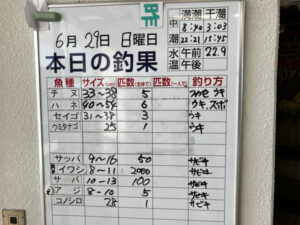 昨
満潮 干潮
中潮 8:40 3:03
22:21 15:45
6月29日 日曜日
水温 午前 22.9
午後
本日の釣果
魚種 サイズ(cm) 匹数(全体で) 匹数(一人で) 釣り方
チヌ 33〜39 5 ウキ
ハネ 40〜54 6 ウキ、ズボ
セイゴ 31〜38 3 ウキ
ウミタナゴ 25 1 ウキ
サッパ 9〜16 50 サビキ
イワシ 8〜11 2000 サビキ
サバ 10〜13 100 サビキ
アジ 8〜10 5 サビキ
コノシロ 28 1 サビキ